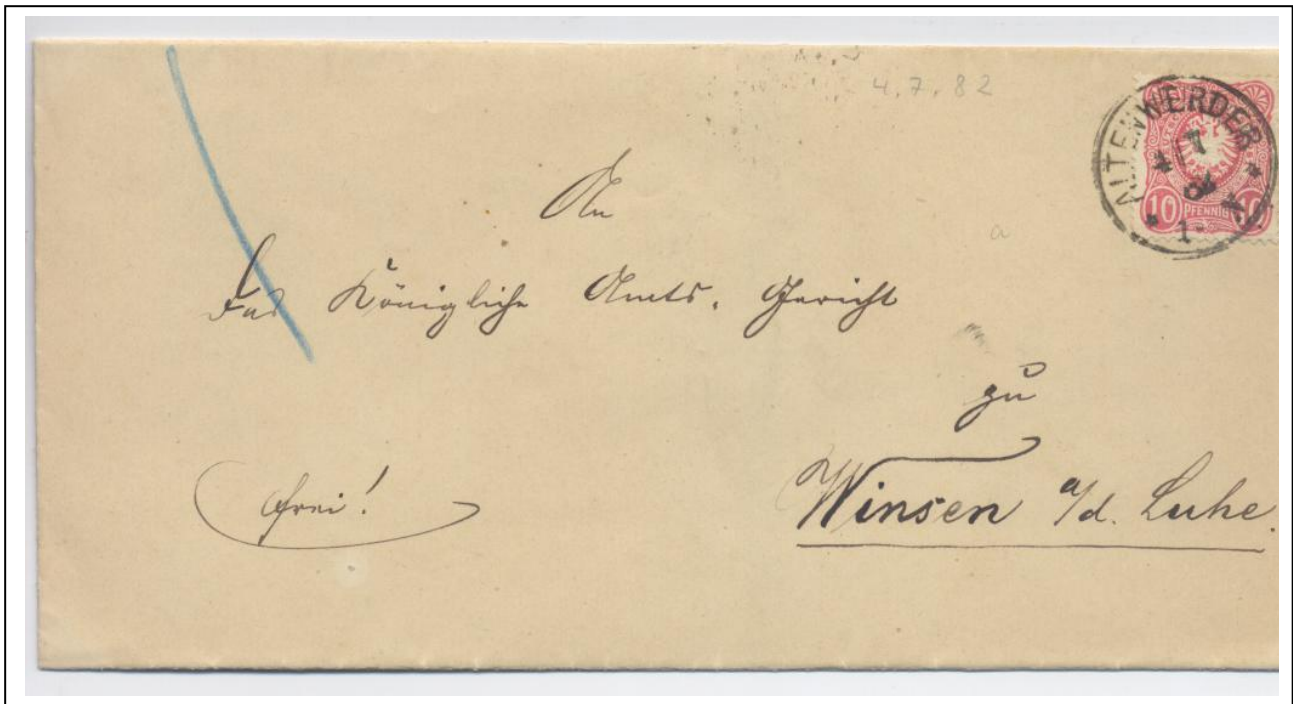 4.7.82
ALTENWERDER
4 7
1-
10 PFENNIG 10
An
Das Königliche Amts-Gericht
zu
Winsen a/d. Luhe.
frei!
a